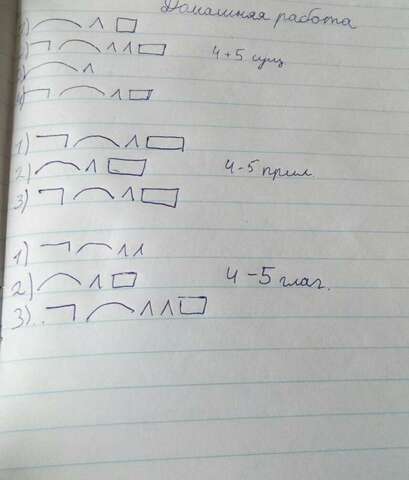 Домашняя работа
2)
4+5 сущ
1)
2)
4-5 прил.
3)
1)
2)
4-5 глаг.
3)